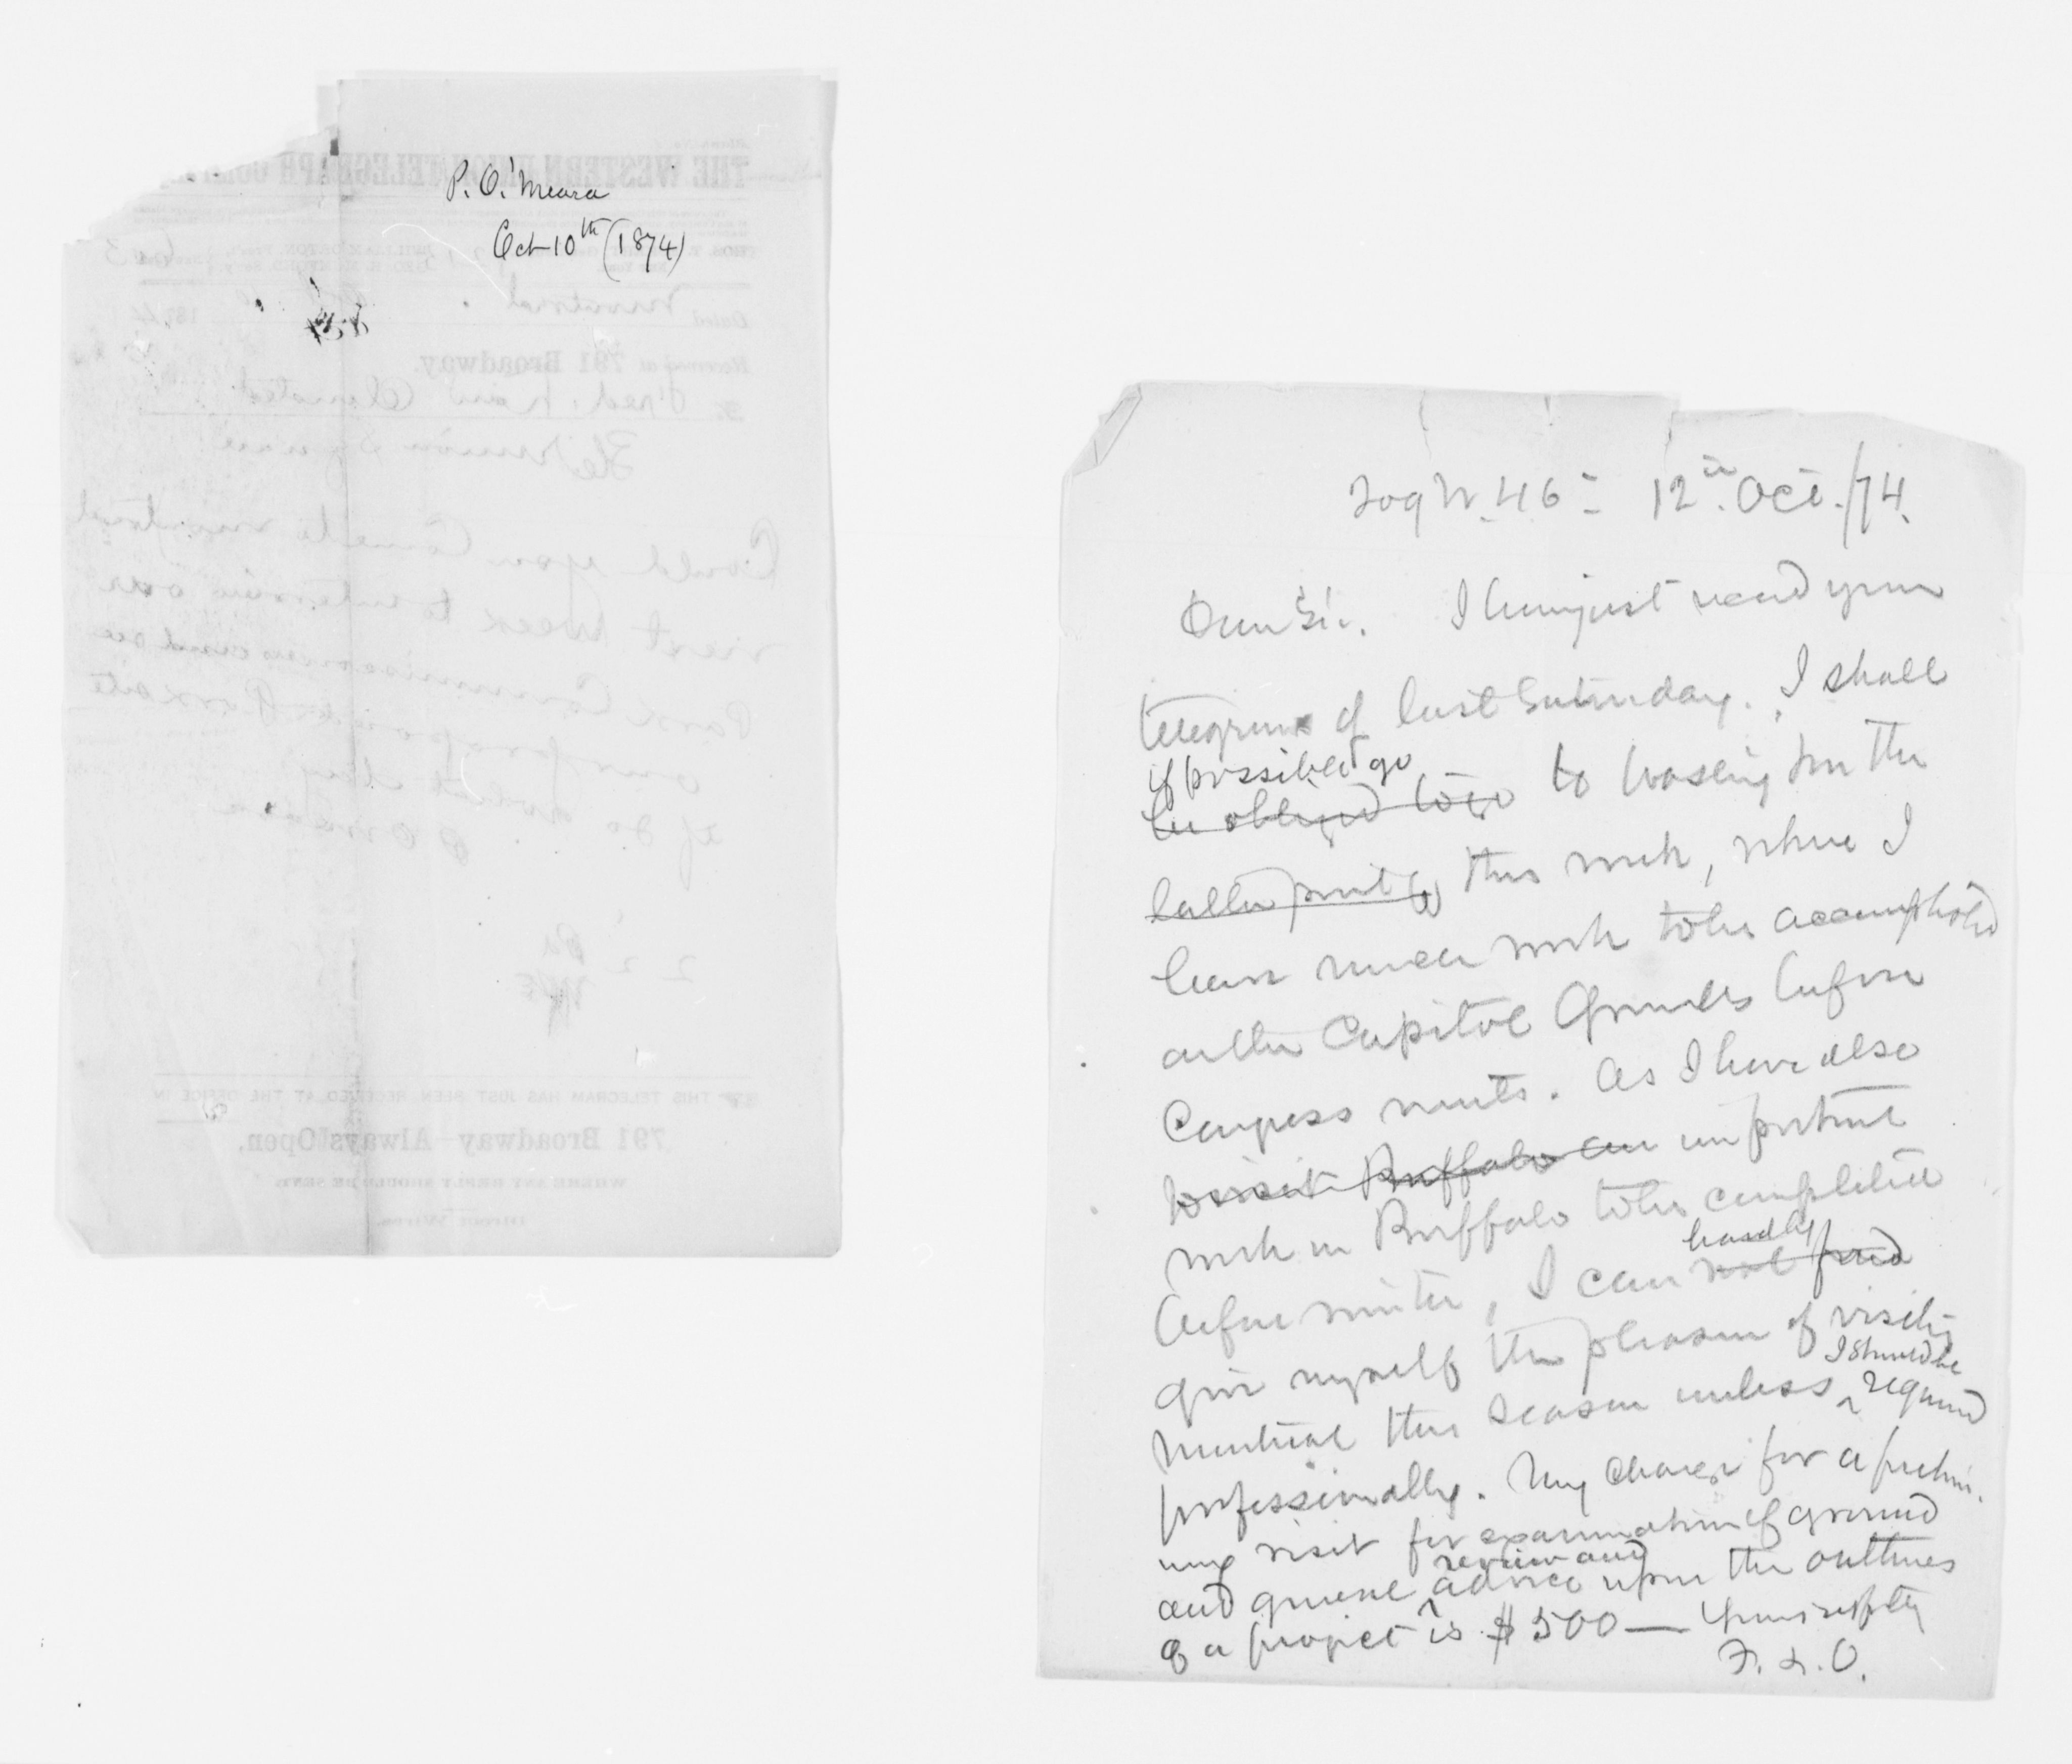 P. O'Meara
Oct 10th (1874)
209 W. 46- 12th Oct./74.
Dear Sir. I have just recd your
telegram of last Saturday. I shall
if possible go
be obliged to go to Washington the
latter part of this week, where I
have much work to be accomplished
on the Capitol Grounds before
Congress meets. As I have also
to visit Buffalo an important
work in Buffalo to be completed
hardly
before winter, I can not find
give myself the pleasure of visiting
I should be
Montreal this season unless ^ required
professionally. My charge for a prelim-
ing visit for examination of ground
review and
and general advice upon the outlines
of a project ^ is $500— Yours respfly
F. L. O.
THE WESTERN UNION TELEGRAPH
Dated Montreal Oct 10 1874
Received at 791 Broadway.
To Fred. Law Olmsted
Union Square
Could you Come to Montreal
next Week to interview our
Park Commissioners and see
our Park site
if so what day
P O'Meara
THIS TELEGRAM HAS JUST BEEN RECEIVED AT THE OFFICE IN
791 Broadway—Always Open,
WHERE ANY REPLY SHOULD BE SENT.
DIRECT WIRES.